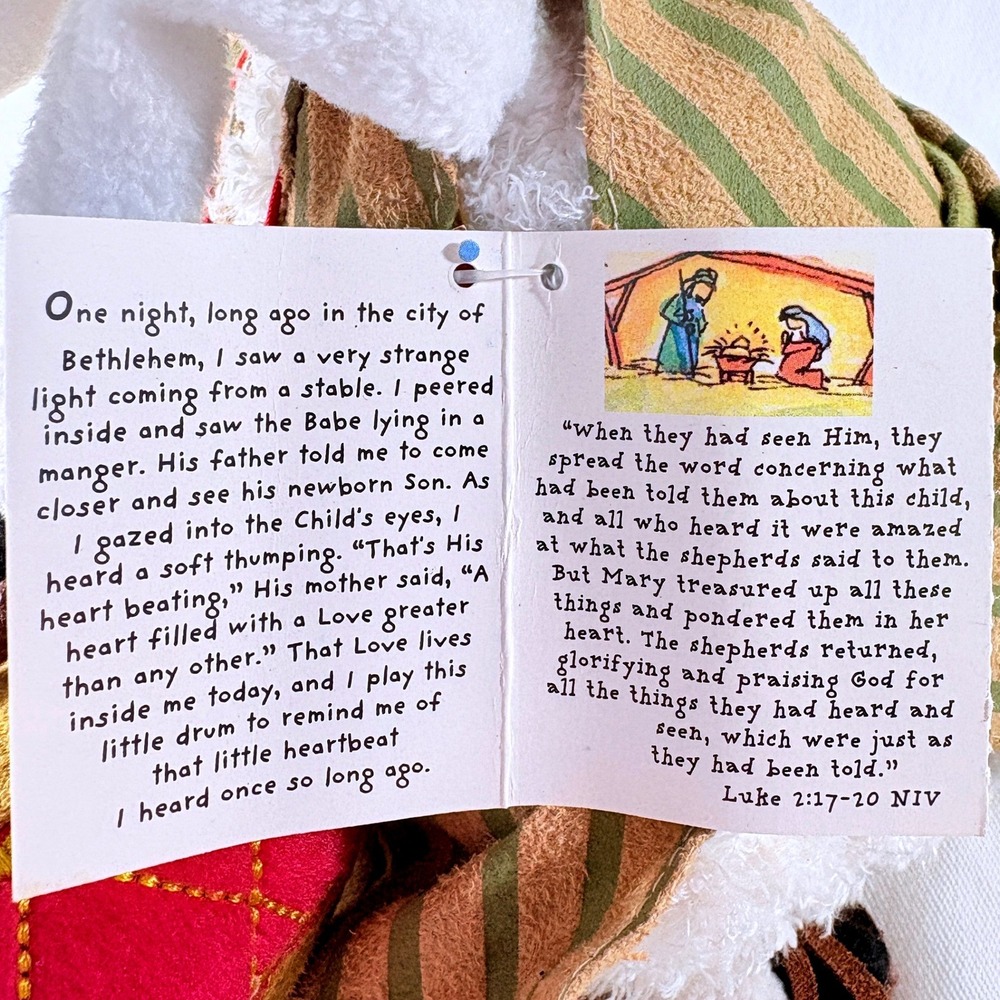 One night, long ago in the city of
Bethlehem, I saw a very strange
light coming from a stable. I peered
inside and saw the Babe lying in a
manger. His father told me to come
closer and see his newborn Son. As
I gazed into the Child's eyes, I
heard a soft thumping. "That's His
heart beating," His mother said, "A
heart filled with a Love greater
than any other." That Love lives
inside me today, and I play this
little drum to remind me of
that little heartbeat
I heard once so long ago.
"When they had seen Him, they
spread the word concerning what
had been told them about this child,
and all who heard it were amazed
at what the shepherds said to them.
But Mary treasured up all these
things and pondered them in her
heart. The shepherds returned,
glorifying and praising God for
all the things they had heard and
seen, which were just as
they had been told."
Luke 2:17-20 NIV